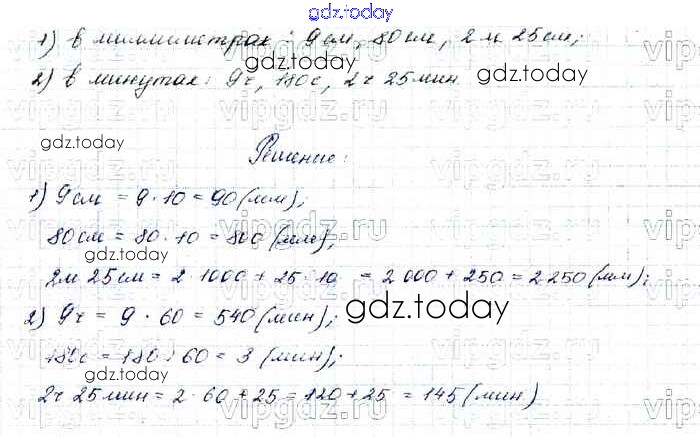 gdz.today
1) в миллиметрах: 9 см, 80 см, 2 м 25 см;
2) в минутах: 9 ч, 180 с, 2 ч 25 мин.
gdz.today
gdz.today
Решение:
1) 9 см = 9 · 10 = 90 (мм);
gdz.today
80 см = 80 · 10 = 800 (мм);
2 м 25 см = 2 · 1000 + 25 · 10 = 2 000 + 250 = 2 250 (мм);
2) 9 ч = 9 · 60 = 540 (мин);
gdz.today
180 с = 180 : 60 = 3 (мин);
gdz.today
2 ч 25 мин = 2 · 60 + 25 = 120 + 25 = 145 (мин)
vipgdz.ru